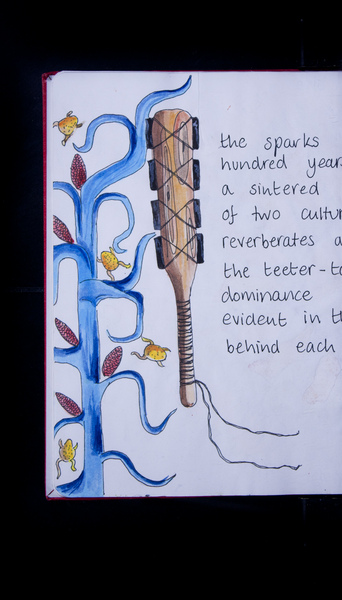 the sparks
hundred year
a sintered
of two cultur
reverberates a
the teeter-to
dominance
evident in th
behind each